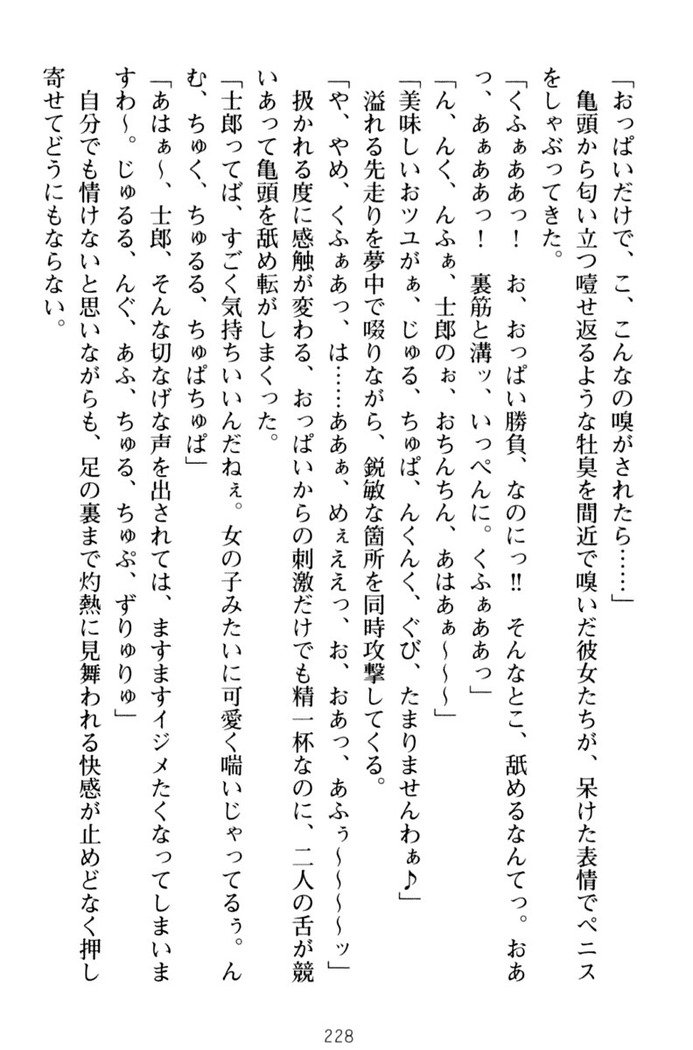 「おっぱいだけで、こ、こんなの嗅がされたら……」
　亀頭から匂い立つ噎せ返るような牡臭を間近で嗅いだ彼女たちが、呆けた表情でペニス
をしゃぶってきた。
「くふぁああっ！　お、おっぱい勝負、なのにっ!!　そんなとこ、舐めるなんてっ。おあ
っ、あぁああっ！　裏筋と溝ッ、いっぺんに。くふぁああっ」
「ん、んく、んふぁ、士郎のぉ、おちんちん、あはあぁ～～～」
「美味しいおツユがぁ、じゅる、ちゅぱ、んくんく、ぐび、たまりませんわぁ♪」
　溢れる先走りを夢中で啜りながら、鋭敏な箇所を同時攻撃してくる。
「や、やめ、くふぁあっ、は……ああぁ、めぇええっ、お、おあっ、あふぅ～～～～ッ」
　扱かれる度に感触が変わる、おっぱいからの刺激だけでも精一杯なのに、二人の舌が競
いあって亀頭を舐め転がしまくった。
「士郎ってば、すごく気持ちいいんだねぇ。女の子みたいに可愛く喘いじゃってるぅ。ん
む、ちゅく、ちゅるる、ちゅぱちゅぱ」
「あはぁ～、士郎、そんな切なげな声を出されては、ますますイジメたくなってしまいま
すわ～。じゅるる、んぐ、あふ、ちゅる、ちゅぷ、ずりゅりゅ」
　自分でも情けないと思いながらも、足の裏まで灼熱に見舞われる快感が止めどなく押し
寄せてどうにもならない。
228